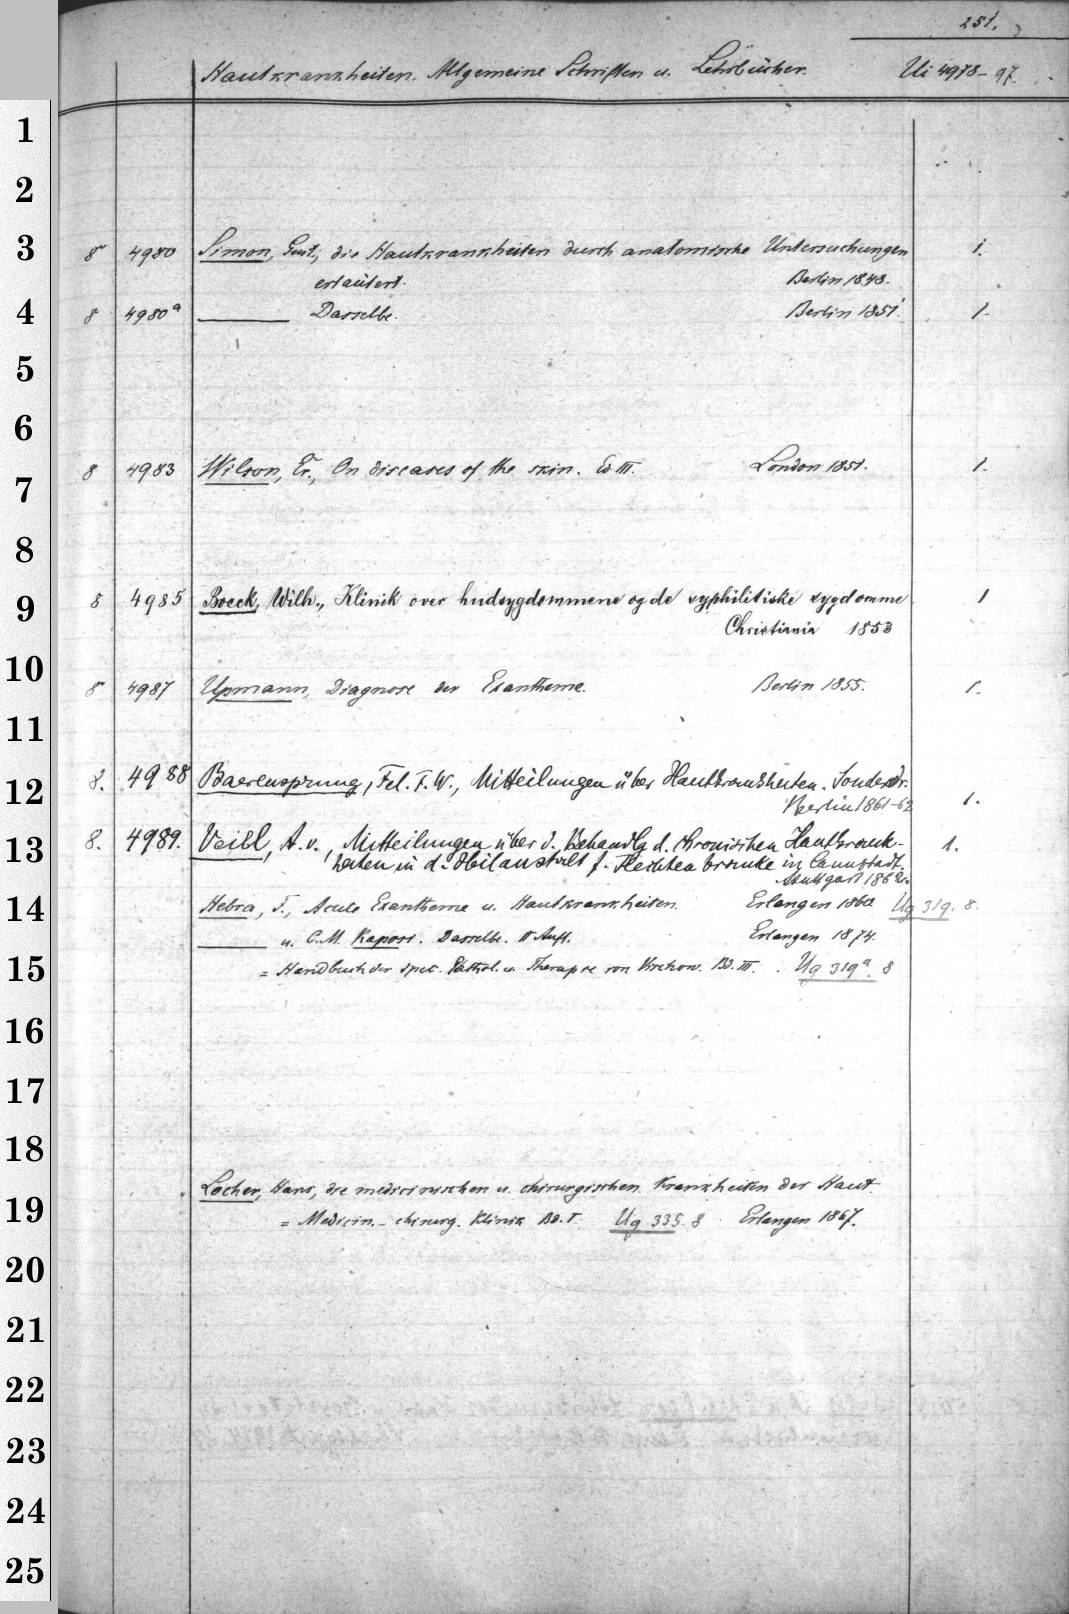 251.
Hautkrankheiten. Allgemeine Schriften u. Lehrbücher. Ui 4978-97.
1
2
3
8 4980 Simon, Gust., die Hautkrankheiten durch anatomische Untersuchungen 1.
erläutert. Berlin 1848.
4
8 4980a Dasselbe. Berlin 1851. 1.
5
6
7
8 4983 Wilson, Er., On diseases of the skin. Ed III. London 1851. 1.
8
9
8 4985 Boeck, Wilh., Klinik over hudsygdommene og de syphilitiske sygdomme 1
Christiania 1853
10
8 4987 Upmann, Diagnose der Exantheme. Berlin 1855. 1.
11
12
8. 4988 Baerensprung, Fel. F. W., Mitteilungen über Hautkrankheiten. Sonderdr.
Berlin 1861-62 1.
13
8. 4989. Veibl, A. v., Mitteilungen über d. Behandlg d. chronischen Hautkrank- 1.
heiten in d. Heilanstalt f. Flechtenkranke in Cannstadt.
Stuttgart 1862.
14
Hebra, F., Acute Exantheme u. Hautkrankheiten. Erlangen 1860 Ug 319. 8.
u. C. M. Kaposi. Dasselbe. II Aufl. Erlangen 1874.
15
= Handbuch der spec. Pathol. u. Therapie von Virchow. Bd. III. Ug 319a. 8
16
17
18
19
Locher, Hans, die medicinischen u. chirurgischen Krankheiten der Haut
= Medicin.-chirurg. Klinik Bd. I. Ug 335. 8 Erlangen 1867.
20
21
22
23
24
25